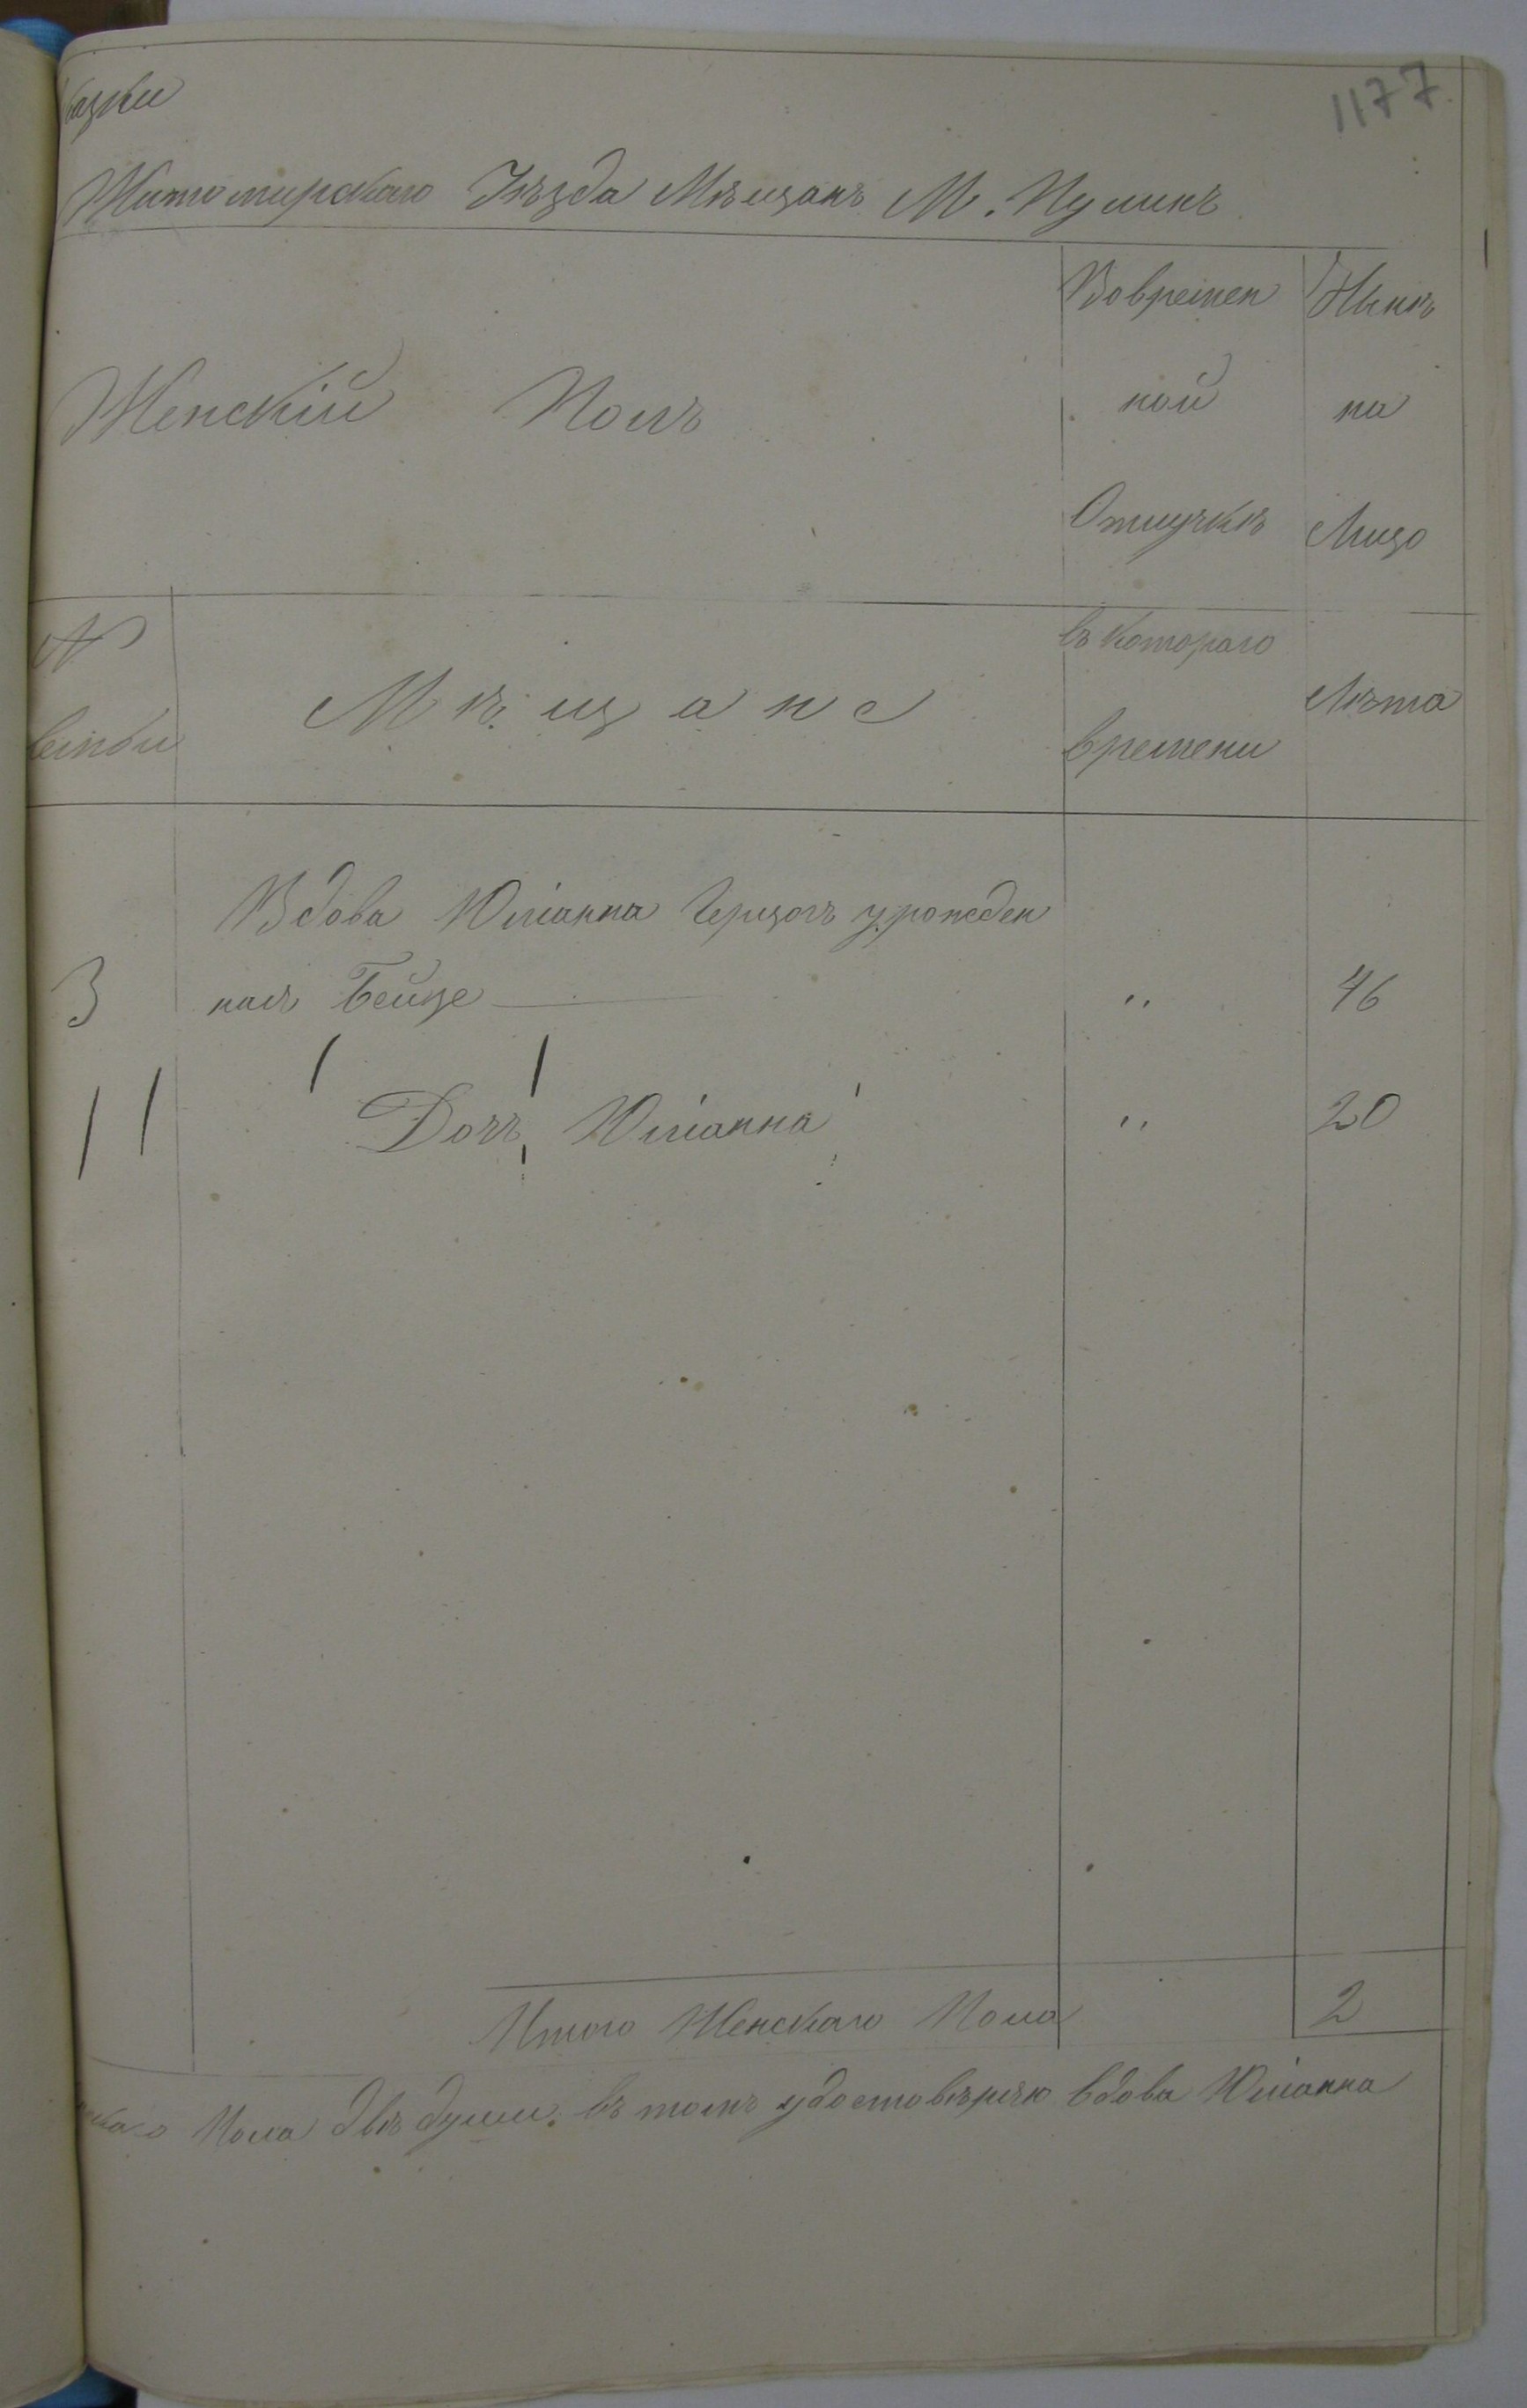 казки
1177
Житомирскаго Уѣзда Мѣщанъ М. Пулинъ
Женскій Полъ
Вовремен
ной
Отлучкѣ
Нынѣ
на
Лицо
№
семьи
Мѣщане
съ котораго
времени
Лѣта
Вдова Юліанна Герцогъ урожден
3 ная Бейце — " 46
Дочь Юліанна " 20
Итого Женскаго Пола 2
скаго Пола двѣ души. въ томъ удостовѣряю вдова Юліанна